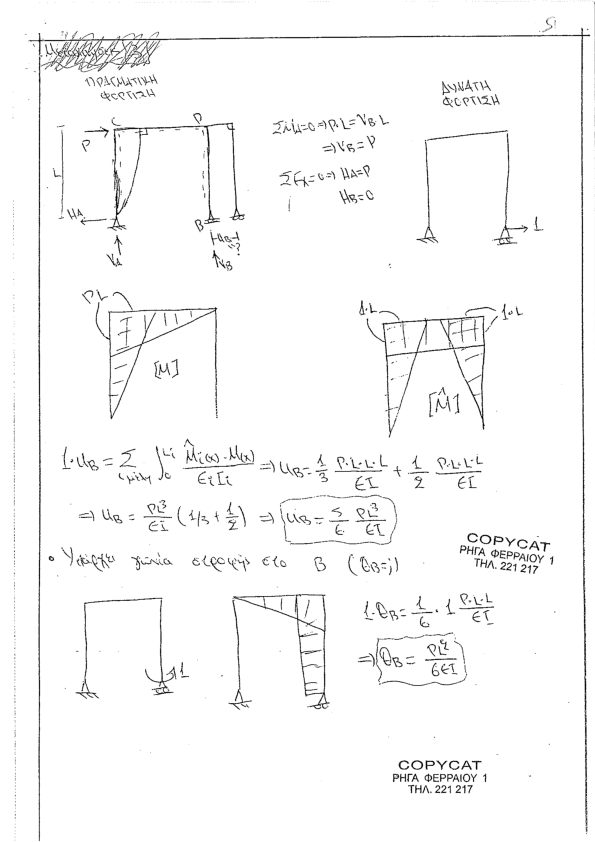 5
ΠΡΑΓΜΑΤΙΚΗ
ΦΟΡΤΙΣΗ
ΔΥΝΑΤΗ
ΦΟΡΤΙΣΗ
C
P
L
HA
VA
B
uB
?
VB
ΣMA=0 ⇒ P.L = VB L
⇒ VB = P
ΣFx=0 ⇒ HA=P
HB=0
1
P.L
[M]
1·L
1·L
[M̂]
1·uB = Σ ∫₀^Li M̂i(x)·M(x) / EiIi ⇒ uB = 1/3 P·L·L·L/EI + 1/2 P·L·L·L/EI
⇒ uB = PL³/EI (1/3 + 1/2) ⇒ uB = 5/6 PL³/EI
• Υπάρχει γωνία στροφής στο B (θB=;)
COPYCAT
ΡΗΓΑ ΦΕΡΡΑΙΟΥ 1
ΤΗΛ. 221 217
1
1·θB = 1/6 · 1 P·L·L/EI
⇒ θB = PL²/6EI
COPYCAT
ΡΗΓΑ ΦΕΡΡΑΙΟΥ 1
ΤΗΛ. 221 217